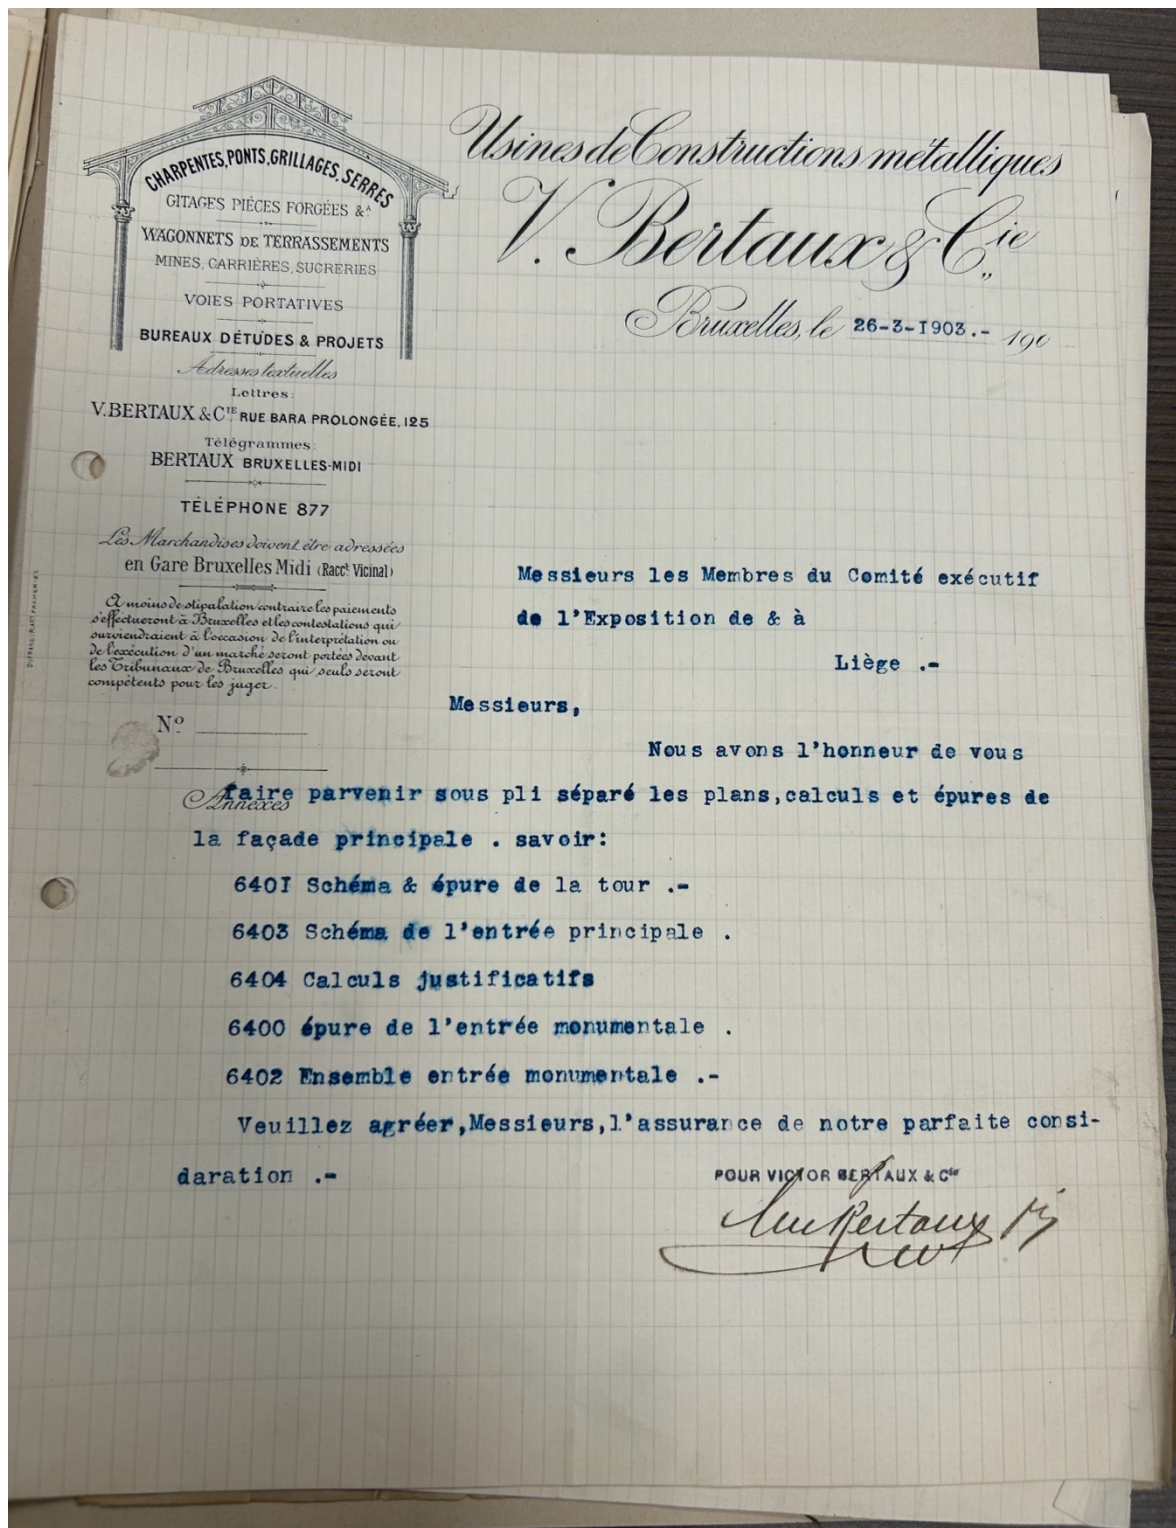 CHARPENTES, PONTS, GRILLAGES, SERRES
GITAGES PIÈCES FORGÉES &ᴬ
WAGONNETS DE TERRASSEMENTS
MINES, CARRIÈRES, SUCRERIES
VOIES PORTATIVES
BUREAUX D'ÉTUDES & PROJETS
Adresses textuelles
Lettres:
V. BERTAUX & CIE RUE BARA PROLONGÉE, 125
Télégrammes:
BERTAUX BRUXELLES-MIDI
TÉLÉPHONE 877
Les Marchandises doivent être adressées
en Gare Bruxelles Midi (Racct Vicinal)
A moins de stipulation contraire les paiements
s'effectueront à Bruxelles et les contestations qui
surviendraient à l'occasion de l'interprétation ou
de l'exécution d'un marché seront portées devant
les Tribunaux de Bruxelles qui seuls seront
compétents pour les juger.
No
Annexes
Usines de Constructions métalliques
V. Bertaux & Cie
Bruxelles, le 26-3-I903.- 190
Messieurs les Membres du Comité exécutif
de l'Exposition de & à
Liège .-
Messieurs,
Nous avons l'honneur de vous
faire parvenir sous pli séparé les plans,calculs et épures de
la façade principale . savoir:
640I Schéma & épure de la tour .-
6403 Schéma de l'entrée principale .
6404 Calculs justificatifs
6400 épure de l'entrée monumentale .
6402 Ensemble entrée monumentale .-
Veuillez agréer,Messieurs,l'assurance de notre parfaite consi-
daration .-
POUR VICTOR BERTAUX & Cie
Bertaux